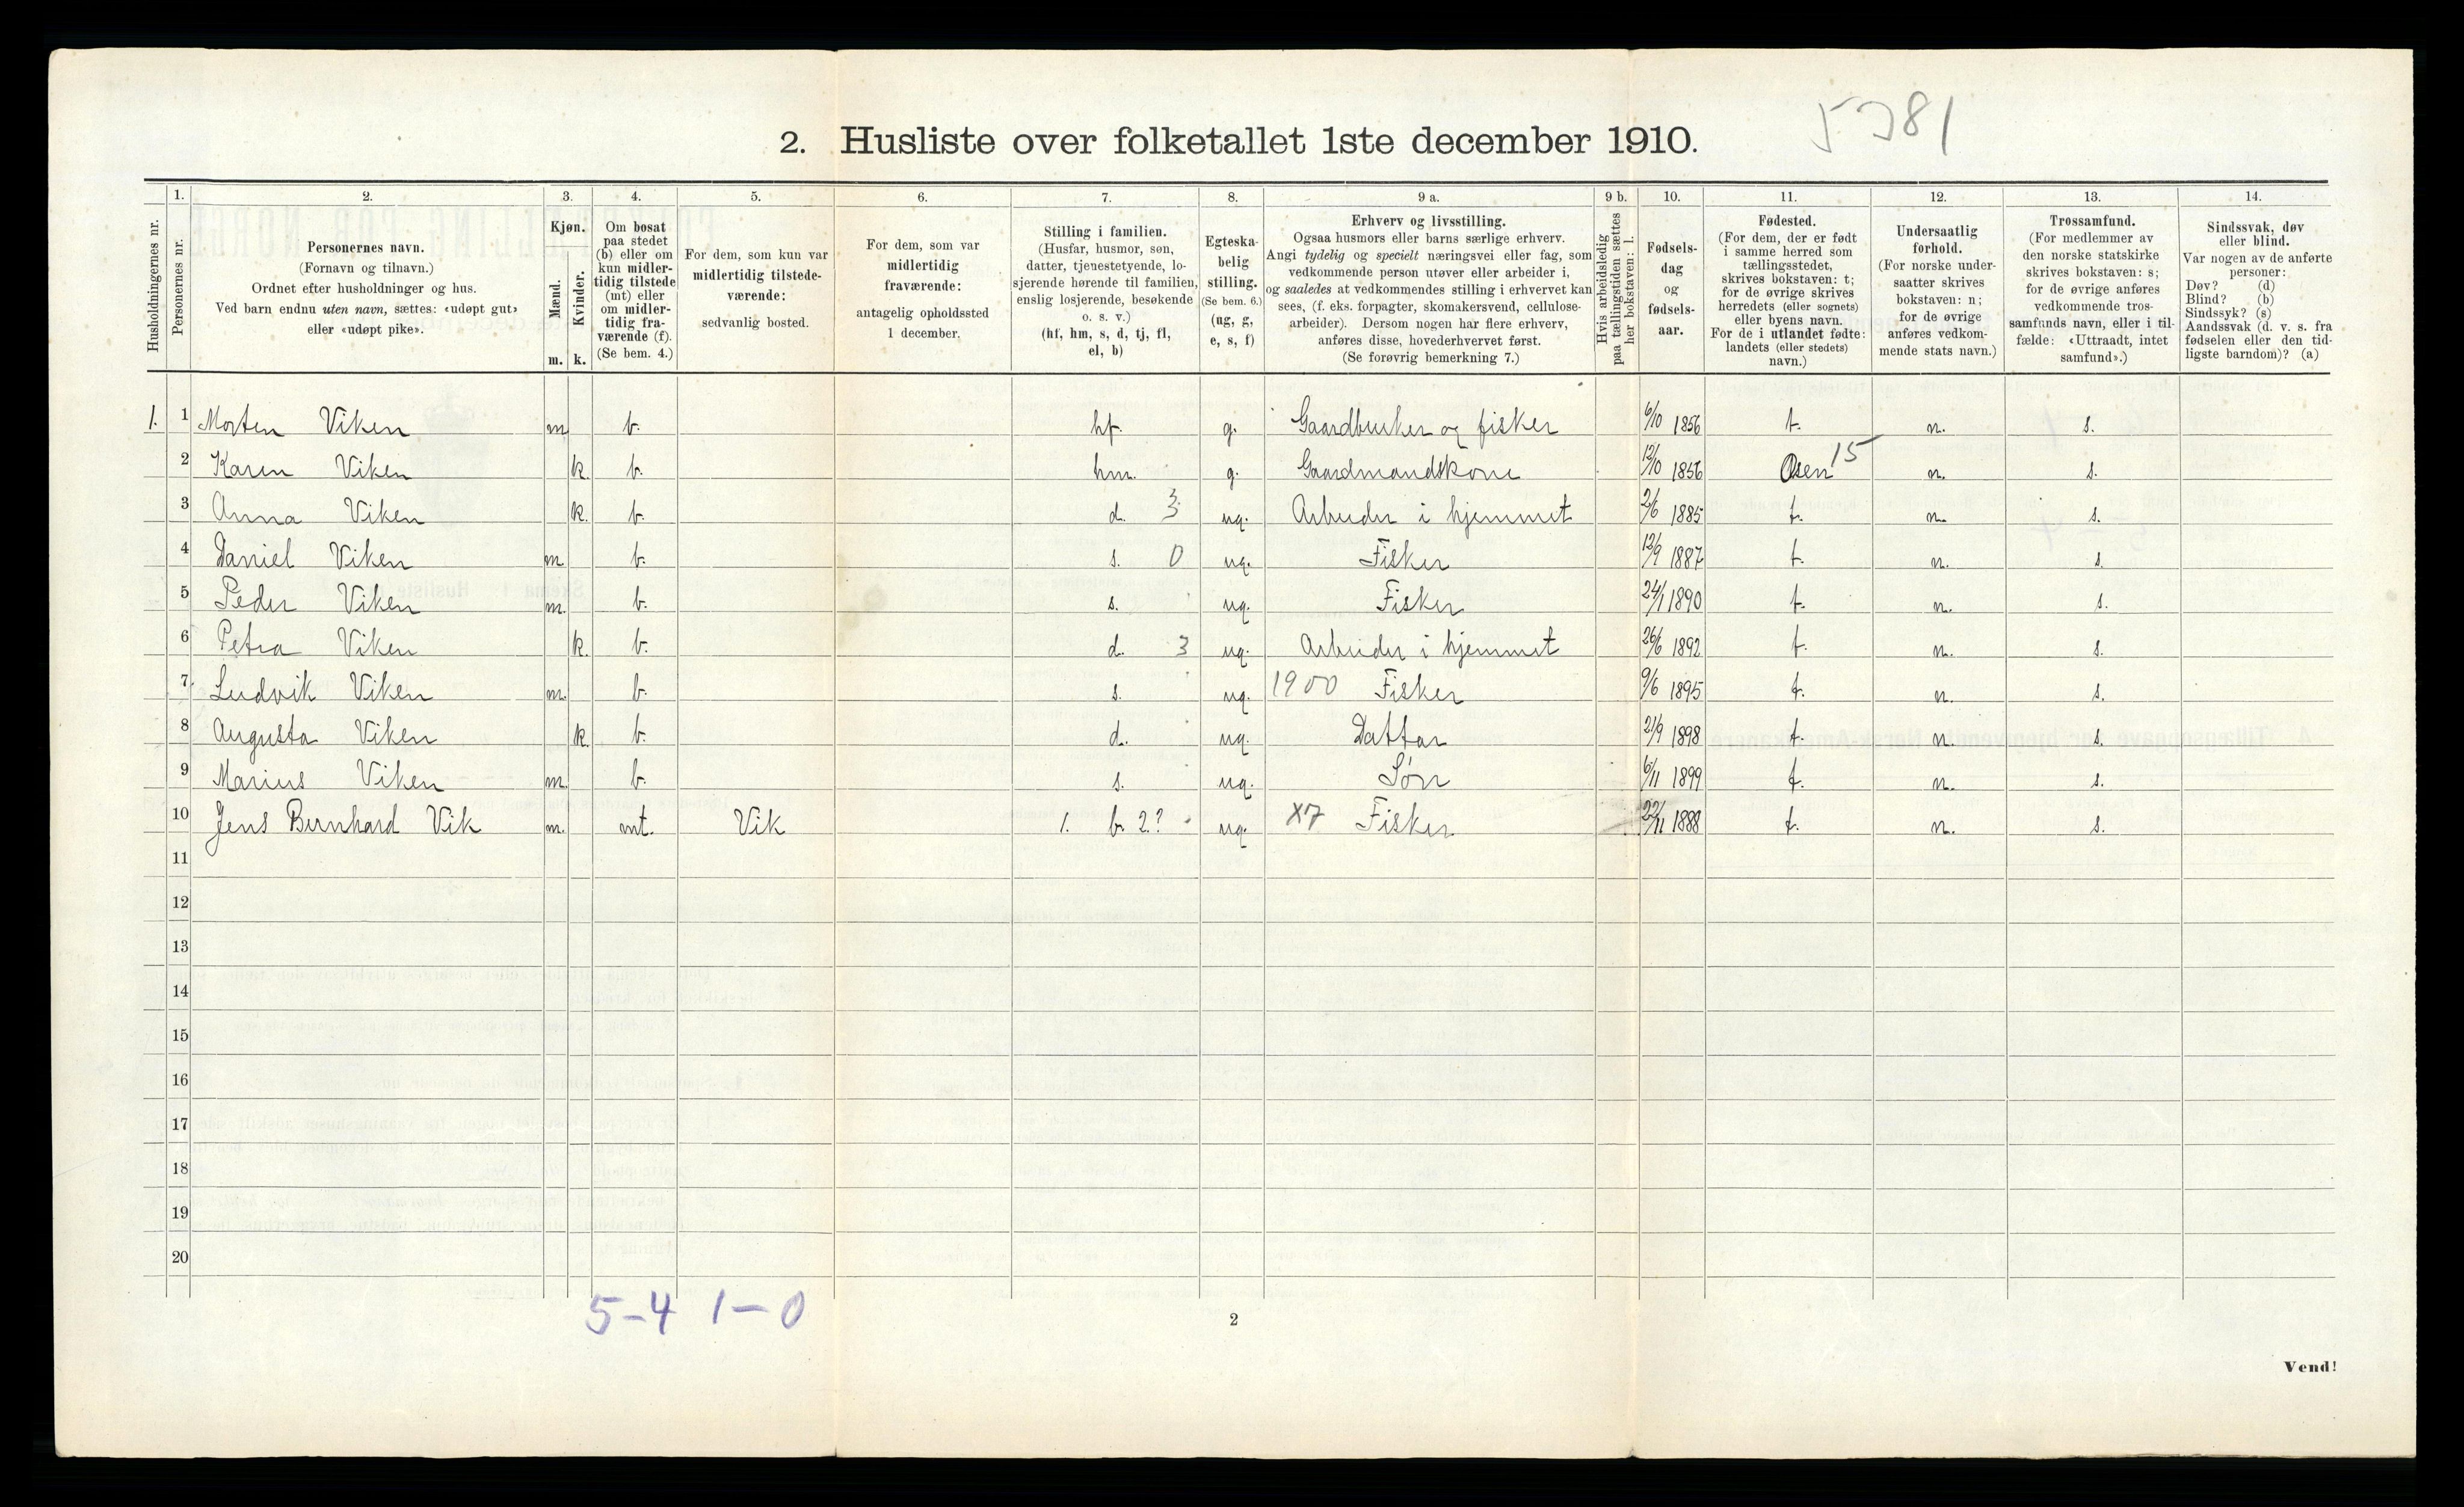 5381
2. Husliste over folketallet 1ste december 1910.
Husholdningernes nr.
1. Personernes nr.
2. Personernes navn.
(Fornavn og tilnavn.)
Ordnet efter husholdninger og hus.
Ved barn endnu uten navn, sættes: «udøpt gut»
eller «udøpt pike».
3. Kjøn.
Mænd. m.
Kvinder. k.
4. Om bosat
paa stedet
(b) eller om
kun midler-
tidig tilstede
(mt) eller
om midler-
tidig fra-
værende (f).
(Se bem. 4.)
5. For dem, som kun var
midlertidig tilstede-
værende:
sedvanlig bosted.
6. For dem, som var
midlertidig
fraværende:
antagelig opholdssted
1 december.
7. Stilling i familien.
(Husfar, husmor, søn,
datter, tjenestetyende, lo-
sjerende hørende til familien,
enslig losjerende, besøkende
o. s. v.)
(hf, hm, s, d, tj, fl,
el, b)
8. Egteska-
belig
stilling.
(Se bem. 6.)
(ug, g,
e, s, f)
9 a. Erhverv og livsstilling.
Ogsaa husmors eller barns særlige erhverv.
Angi tydelig og specielt næringsvei eller fag, som
vedkommende person utøver eller arbeider i,
og saaledes at vedkommendes stilling i erhvervet kan
sees, (f. eks. forpagter, skomakersvend, cellulose-
arbeider). Dersom nogen har flere erhverv,
anføres disse, hovederhvervet først.
(Se forøvrig bemerkning 7.)
9 b. Hvis arbeidsledig
paa tællingstiden sættes
her bokstaven: l.
10. Fødsels-
dag
og
fødsels-
aar.
11. Fødested.
(For dem, der er født
i samme herred som
tællingsstedet,
skrives bokstaven: t;
for de øvrige skrives
herredets (eller sognets)
eller byens navn.
For de i utlandet fødte:
landets (eller stedets)
navn.)
12. Undersaatlig
forhold.
(For norske under-
saatter skrives
bokstaven: n;
for de øvrige
anføres vedkom-
mende stats navn.)
13. Trossamfund.
(For medlemmer av
den norske statskirke
skrives bokstaven: s;
for de øvrige anføres
vedkommende tros-
samfunds navn, eller i til-
fælde: «Uttraadt, intet
samfund».)
14. Sindssvak, døv
eller blind.
Var nogen av de anførte
personer:
Døv? (d)
Blind? (b)
Sindssyk? (s)
Aandssvak (d. v. s. fra
fødselen eller den tid-
ligste barndom)? (a)
1. 1 Morten Viken m b. hf. g. Gaardbruker og fisker 6/10 1856 t. n. s.
2 Karen Viken k. b. hm. g. Gaardmandskone 12/10 1856 Osen 15 n. s.
3 Anna Viken k. b. d. 3 ug. Arbeider i hjemmet 2/6 1885 t. n. s.
4 Daniel Viken m b. s. 0 ug. Fisker 12/9 1887 t. n. s.
5 Peder Viken m. b. s. ug. Fisker 24/1 1890 t. n. s.
6 Petra Viken k. b. d. 3 ug. Arbeider i hjemmet 26/6 1892 t. n. s.
7 Ludvik Viken m. b. s. ug. 1900 Fisker 9/6 1895 t. n. s.
8 Augusta Viken k. b. d. ug. Dattar 21/9 1898 t. n. s.
9 Marius Viken m. b. s. ug. Søn 6/11 1899 t. n. s.
10 Jens Bernhard Vik m. mt. Vik 1. b. 2? ug. X7 Fisker 22/11 1888 t. n. s.
11
12
13
14
15
16
17
18
19
20
5-4 1-0
2
Vend!